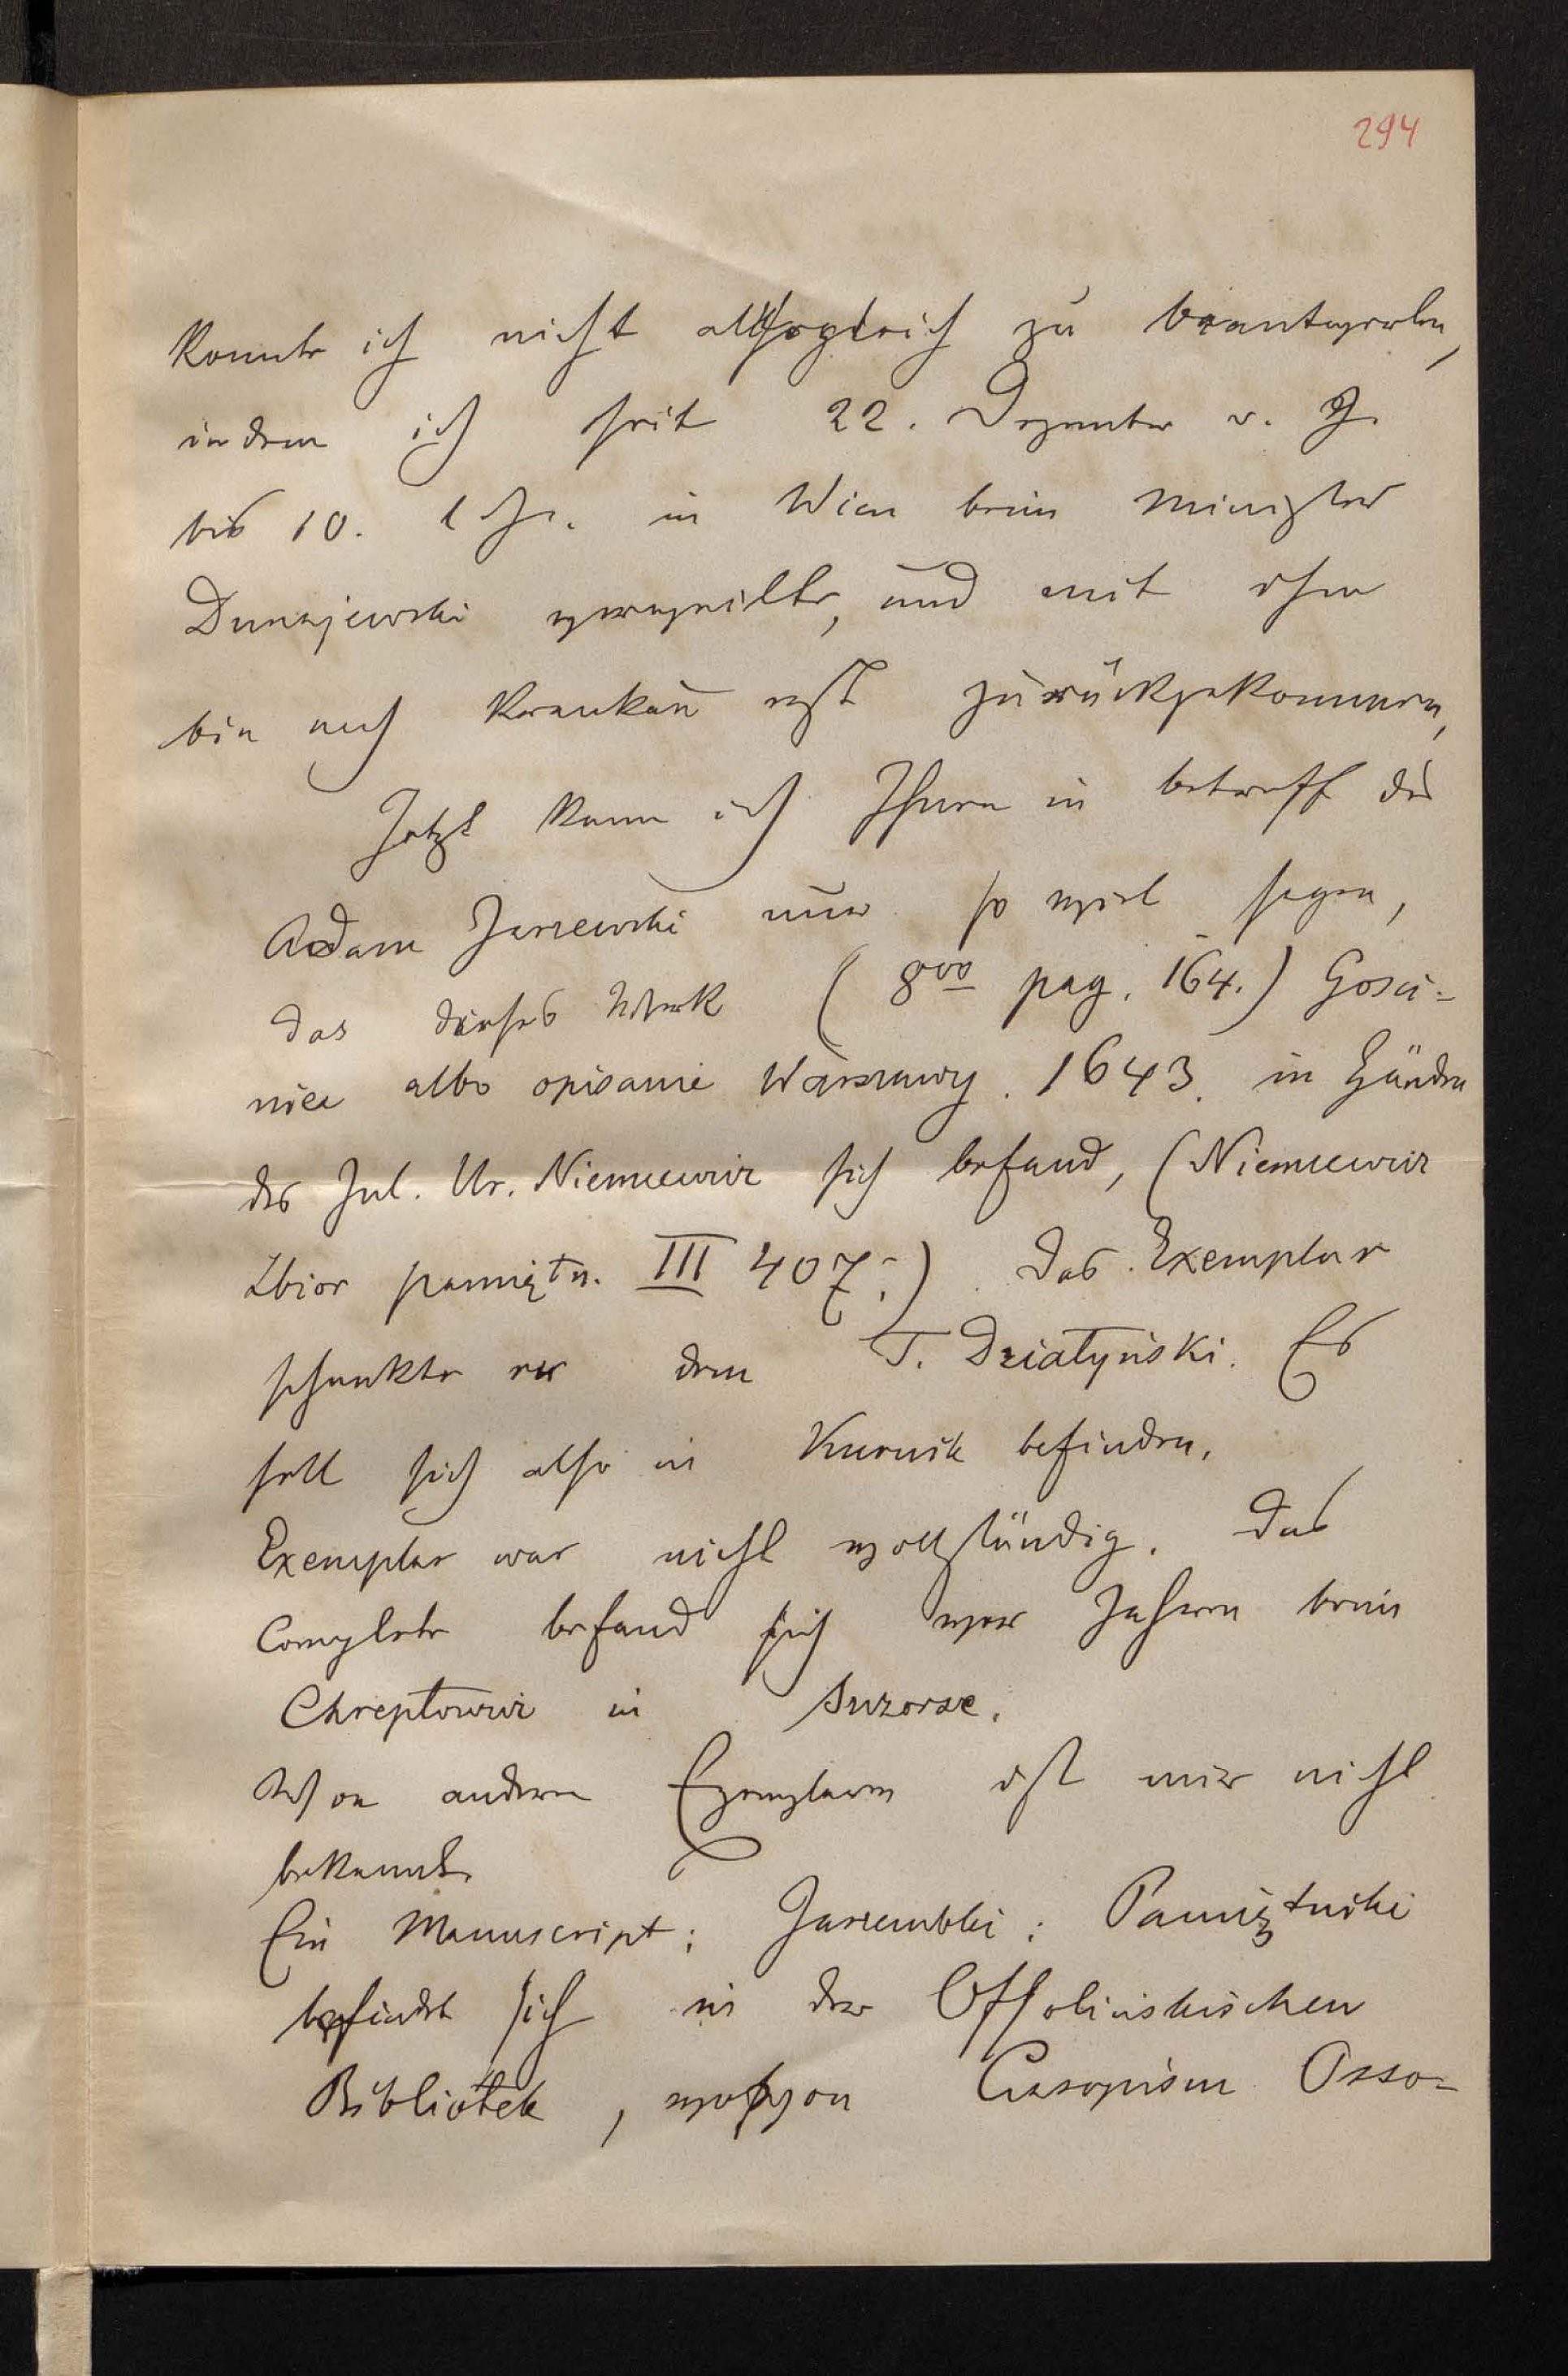 294
konnte ich nicht allsogleich zu beantworten,
indem ich seit 22. Dezember v. J.
bis 10. l. J. in Wien beim Minister
Dunajewski verweilte, und mit ihm
bin nach Kraukau erst zurückgekommen,
Jetzt kann ich Ihnen in betreff des
Adam Jarzewski nur so viel sagen,
das dieses Werk (8vo pag. 164.) Gosci=
niec albo opisanie Warszawy. 1643. in Händen
des Jul. Ur. Niemcewicz sich befand, (Niemcewicz
Zbior pamiętn. III 407.) Das Exemplar
schenkte er dem T. Działyński. Es
soll sich also in Kurnik befinden.
Exemplar war nicht vollständig. Das
Complete befand sich vor Jahren beim
Chreptowicz in Szczorse.
Von andern Exemplaren ist mir nicht
bekannt.
Ein Manuscript: Jarzembski: Pamiętniki
befindet sich in der Ossolinskischen
Bibliotek, wovon Czasopism Osso=